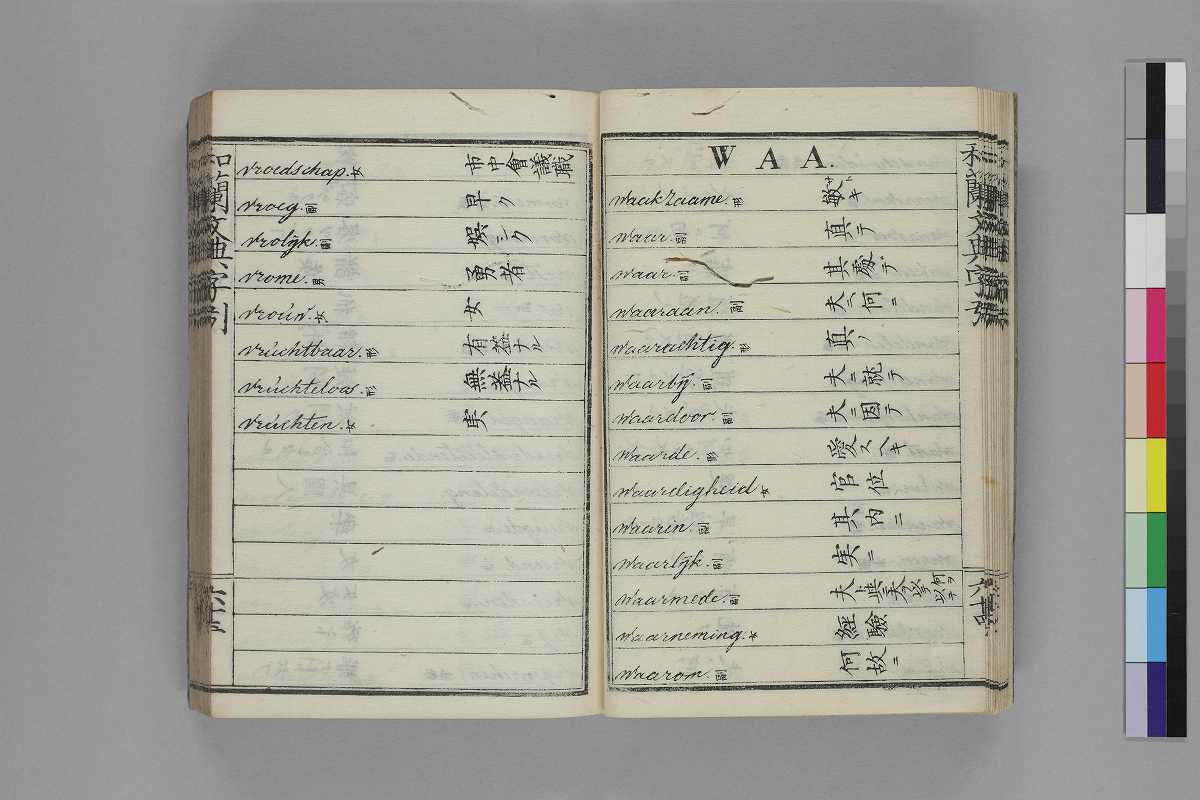 vroedschap. 女 市中會議職
vroeg. 副 早ク
vrolijk. 副 娯シク
vrome. 男 勇者
vroúw. 女 女
vrúchtbaar. 形 有益ナル
vrúchteloos. 形 無益ナル
vrúchten. 女 実
和蘭文典字引
WAA.
waakzaame. 形 敏キ
waar. 副 真テ
waar. 副 其處デ
waaraan. 副 夫ニ何ニ
waarachtig. 形 真ノ
waarbij. 副 夫ニ就テ
waardoor. 副 夫ニ因テ
waarde. 形 愛スヘキ
waardigheid 女 官位
waarin. 副 其内ニ
waarlijk. 副 実ニ
waarmede. 副 夫ト與ニ夫ヲ以テ何ヲ以テ
waarneming. 女 經驗
waarom. 副 何故ニ
和蘭文典字引
六十四